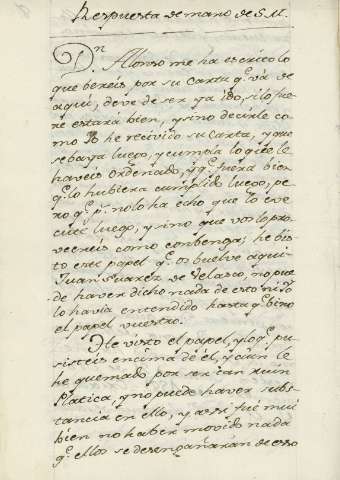 Respuesta de mano de S. M.
Dn. Alonso me ha escrito lo
que bereis por su carta qe. vá de
aqui, deve de ser ya ido, si lo fue
re estará bien, y sino decirle co
mo Yo he recivido su Carta, y que
se baya luego, y cumpla lo que le
haveis ordenado, y qe. fuera bien
qe. lo hubiera cumplido luego, pe
ro qe. ps. no lo ha echo que lo exe
cute luego, y sino que vos lo pro
veereis como conbenga; he bis
to este papel qe. os buelve aqui
Juan Suarez de Velasco, no pue
de haver dicho nada de esto ni Yo
lo havia entendido hasta qe. bino
el papel vuestro.
He visto el papel, y lo qe. pu
sisteis encima de él, y aun le
he quemado por ser tan ruin
Platica, y no puede haver subs
tancia en ello, y assi fué mui
bien no haber movido nada
qe. ellos se desengañarán de esso